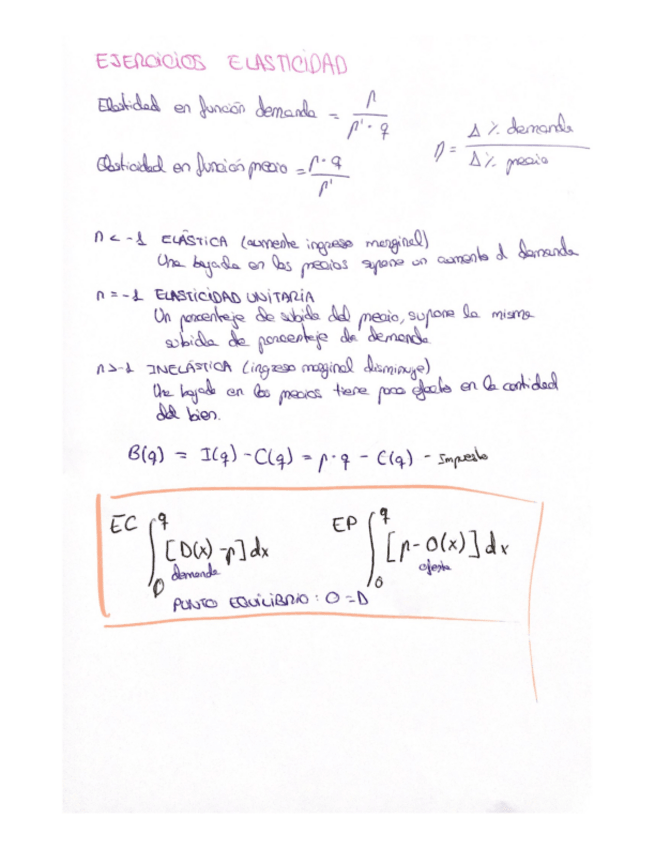 EJERCICIOS ELASTICIDAD
Elasticidad en función demanda = p / p' · q
η = Δ % demanda / Δ % precio
Elasticidad en función precio = p · q / p'
n < -1 ELÁSTICA (aumente ingreso marginal)
Una bajada en los precios supone un aumento d demanda
n = -1 ELASTICIDAD UNITARIA
Un porcentaje de subida del precio, supone la misma
subida de porcentaje de demanda.
n > -1 INELÁSTICA (ingreso marginal disminuye)
Una bajada en los precios tiene poco efecto en la cantidad
del bien.
B(q) = I(q) - C(q) = p · q - C(q) - Impuesto
EC ∫₀^q [D(x) - p] dx
demanda
EP ∫₀^q [p - O(x)] dx
oferta
PUNTO EQUILIBRIO : O = D